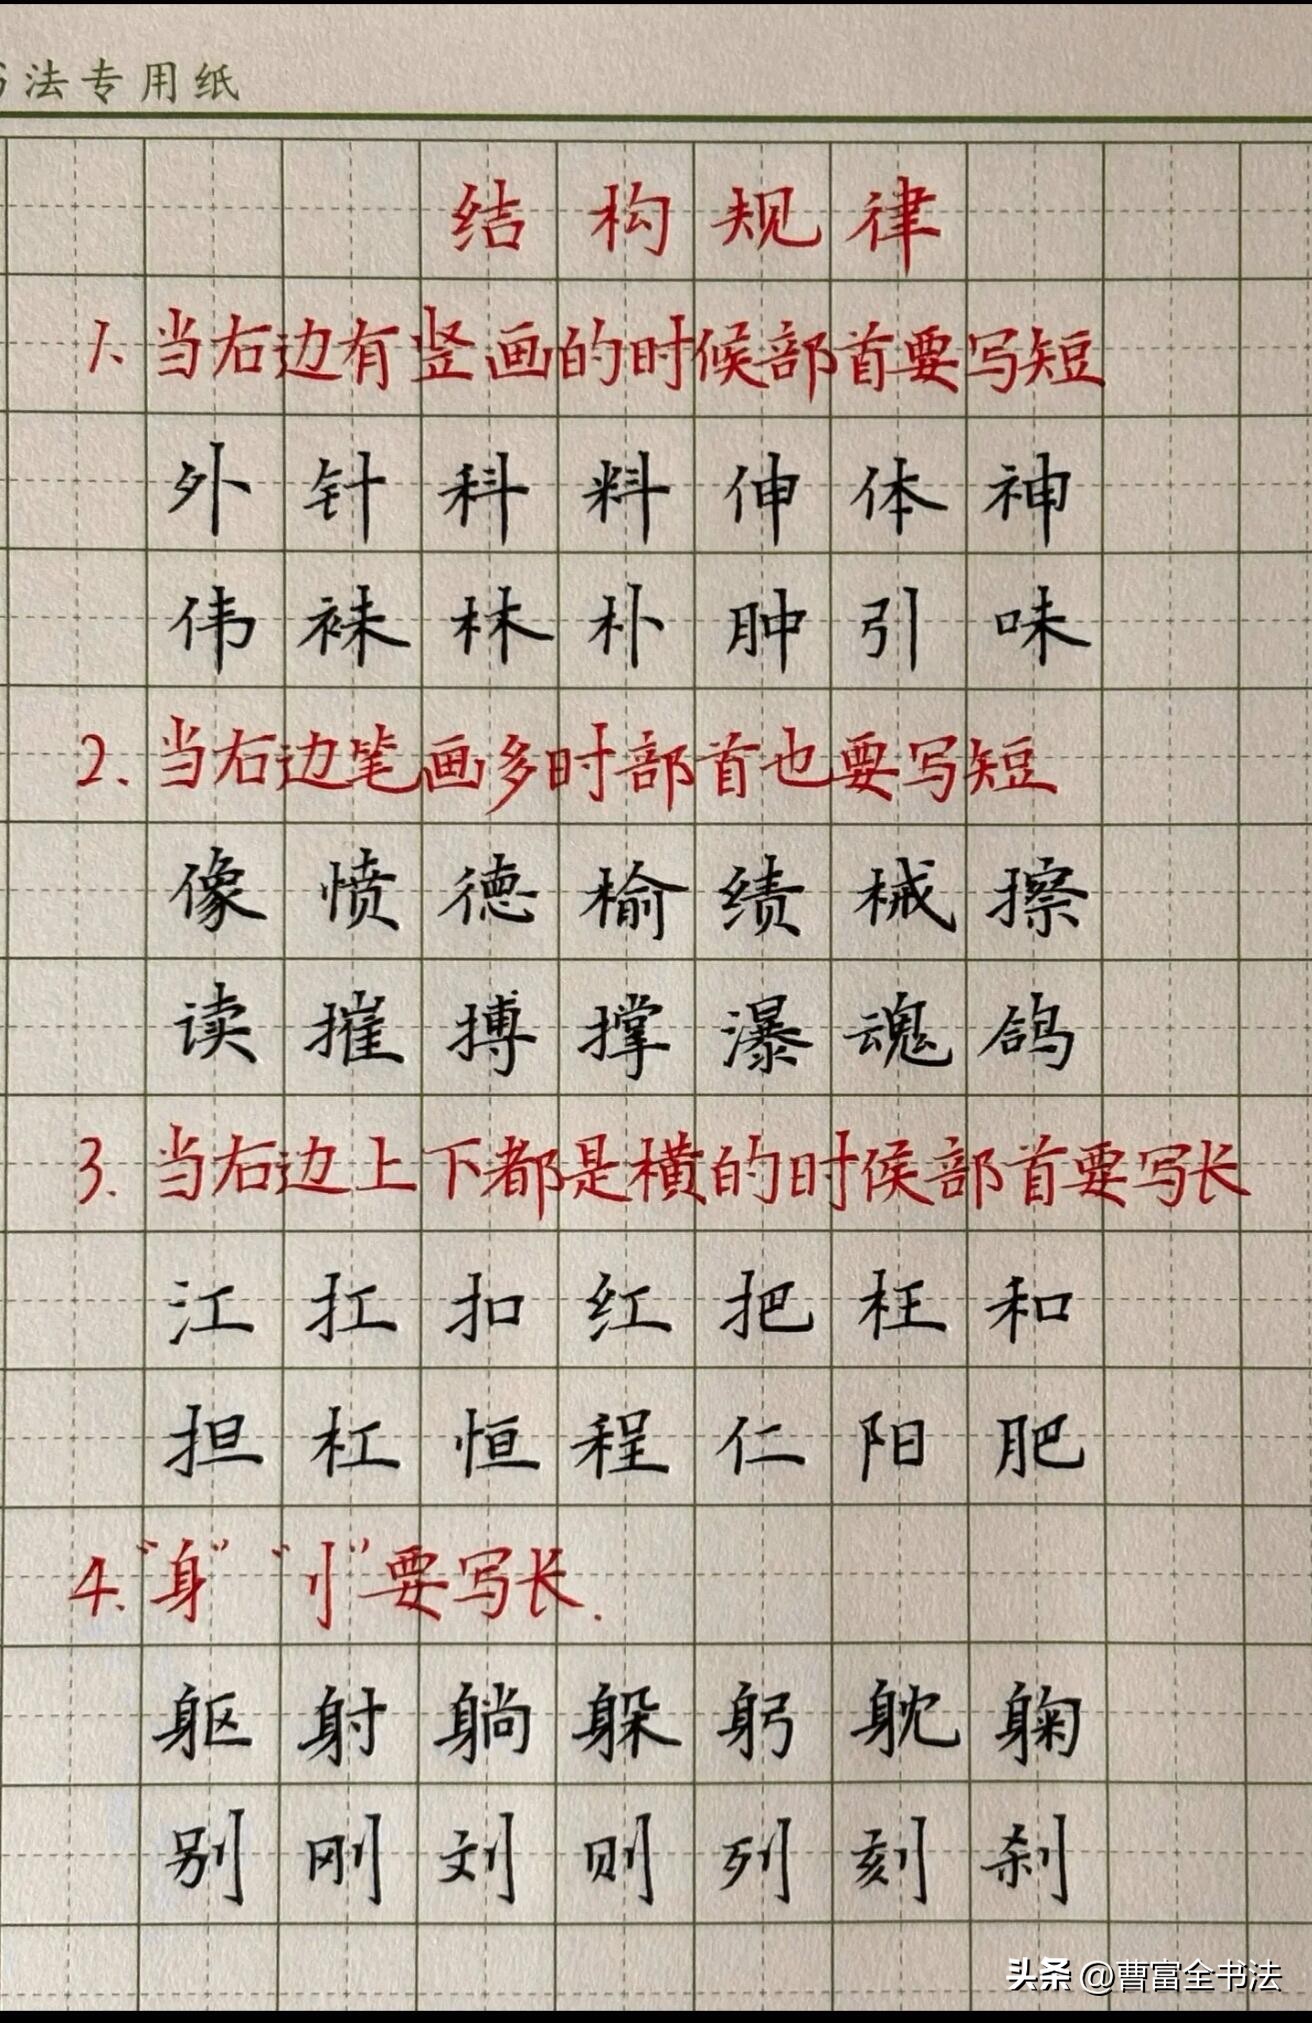 书法专用纸
结构规律
1、当右边有竖画的时候部首要写短
外针科料伸体神
伟袜林朴肿引味
2、当右边笔画多时部首也要写短
像愤德榆绩械擦
读摧搏撑瀑魂鸽
3、当右边上下都是横的时候部首要写长
江扛扣红把枉和
担杠恒程仁阳肥
4、“身”“刂”要写长.
躯射躺躲躬躭鞠
别刚刘则列刻刹
头条 @曹富全书法